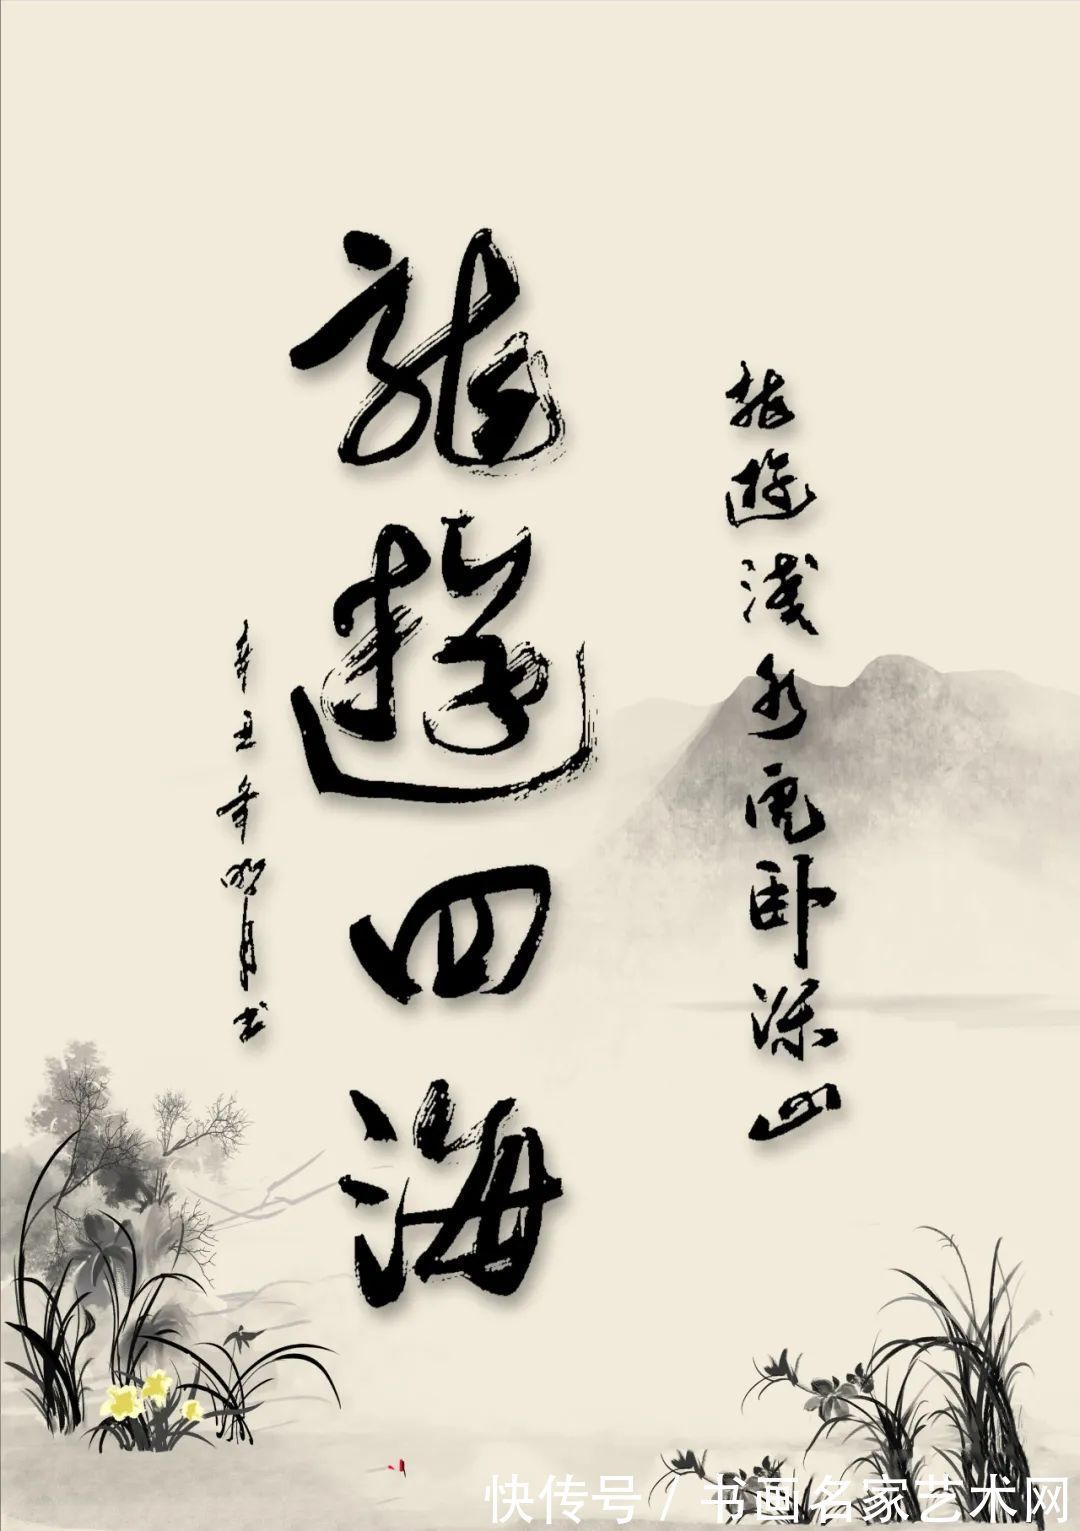 龍遊淺水虎卧深山
龍遊四海
辛丑年明月书
快传号 / 书画名家艺术网